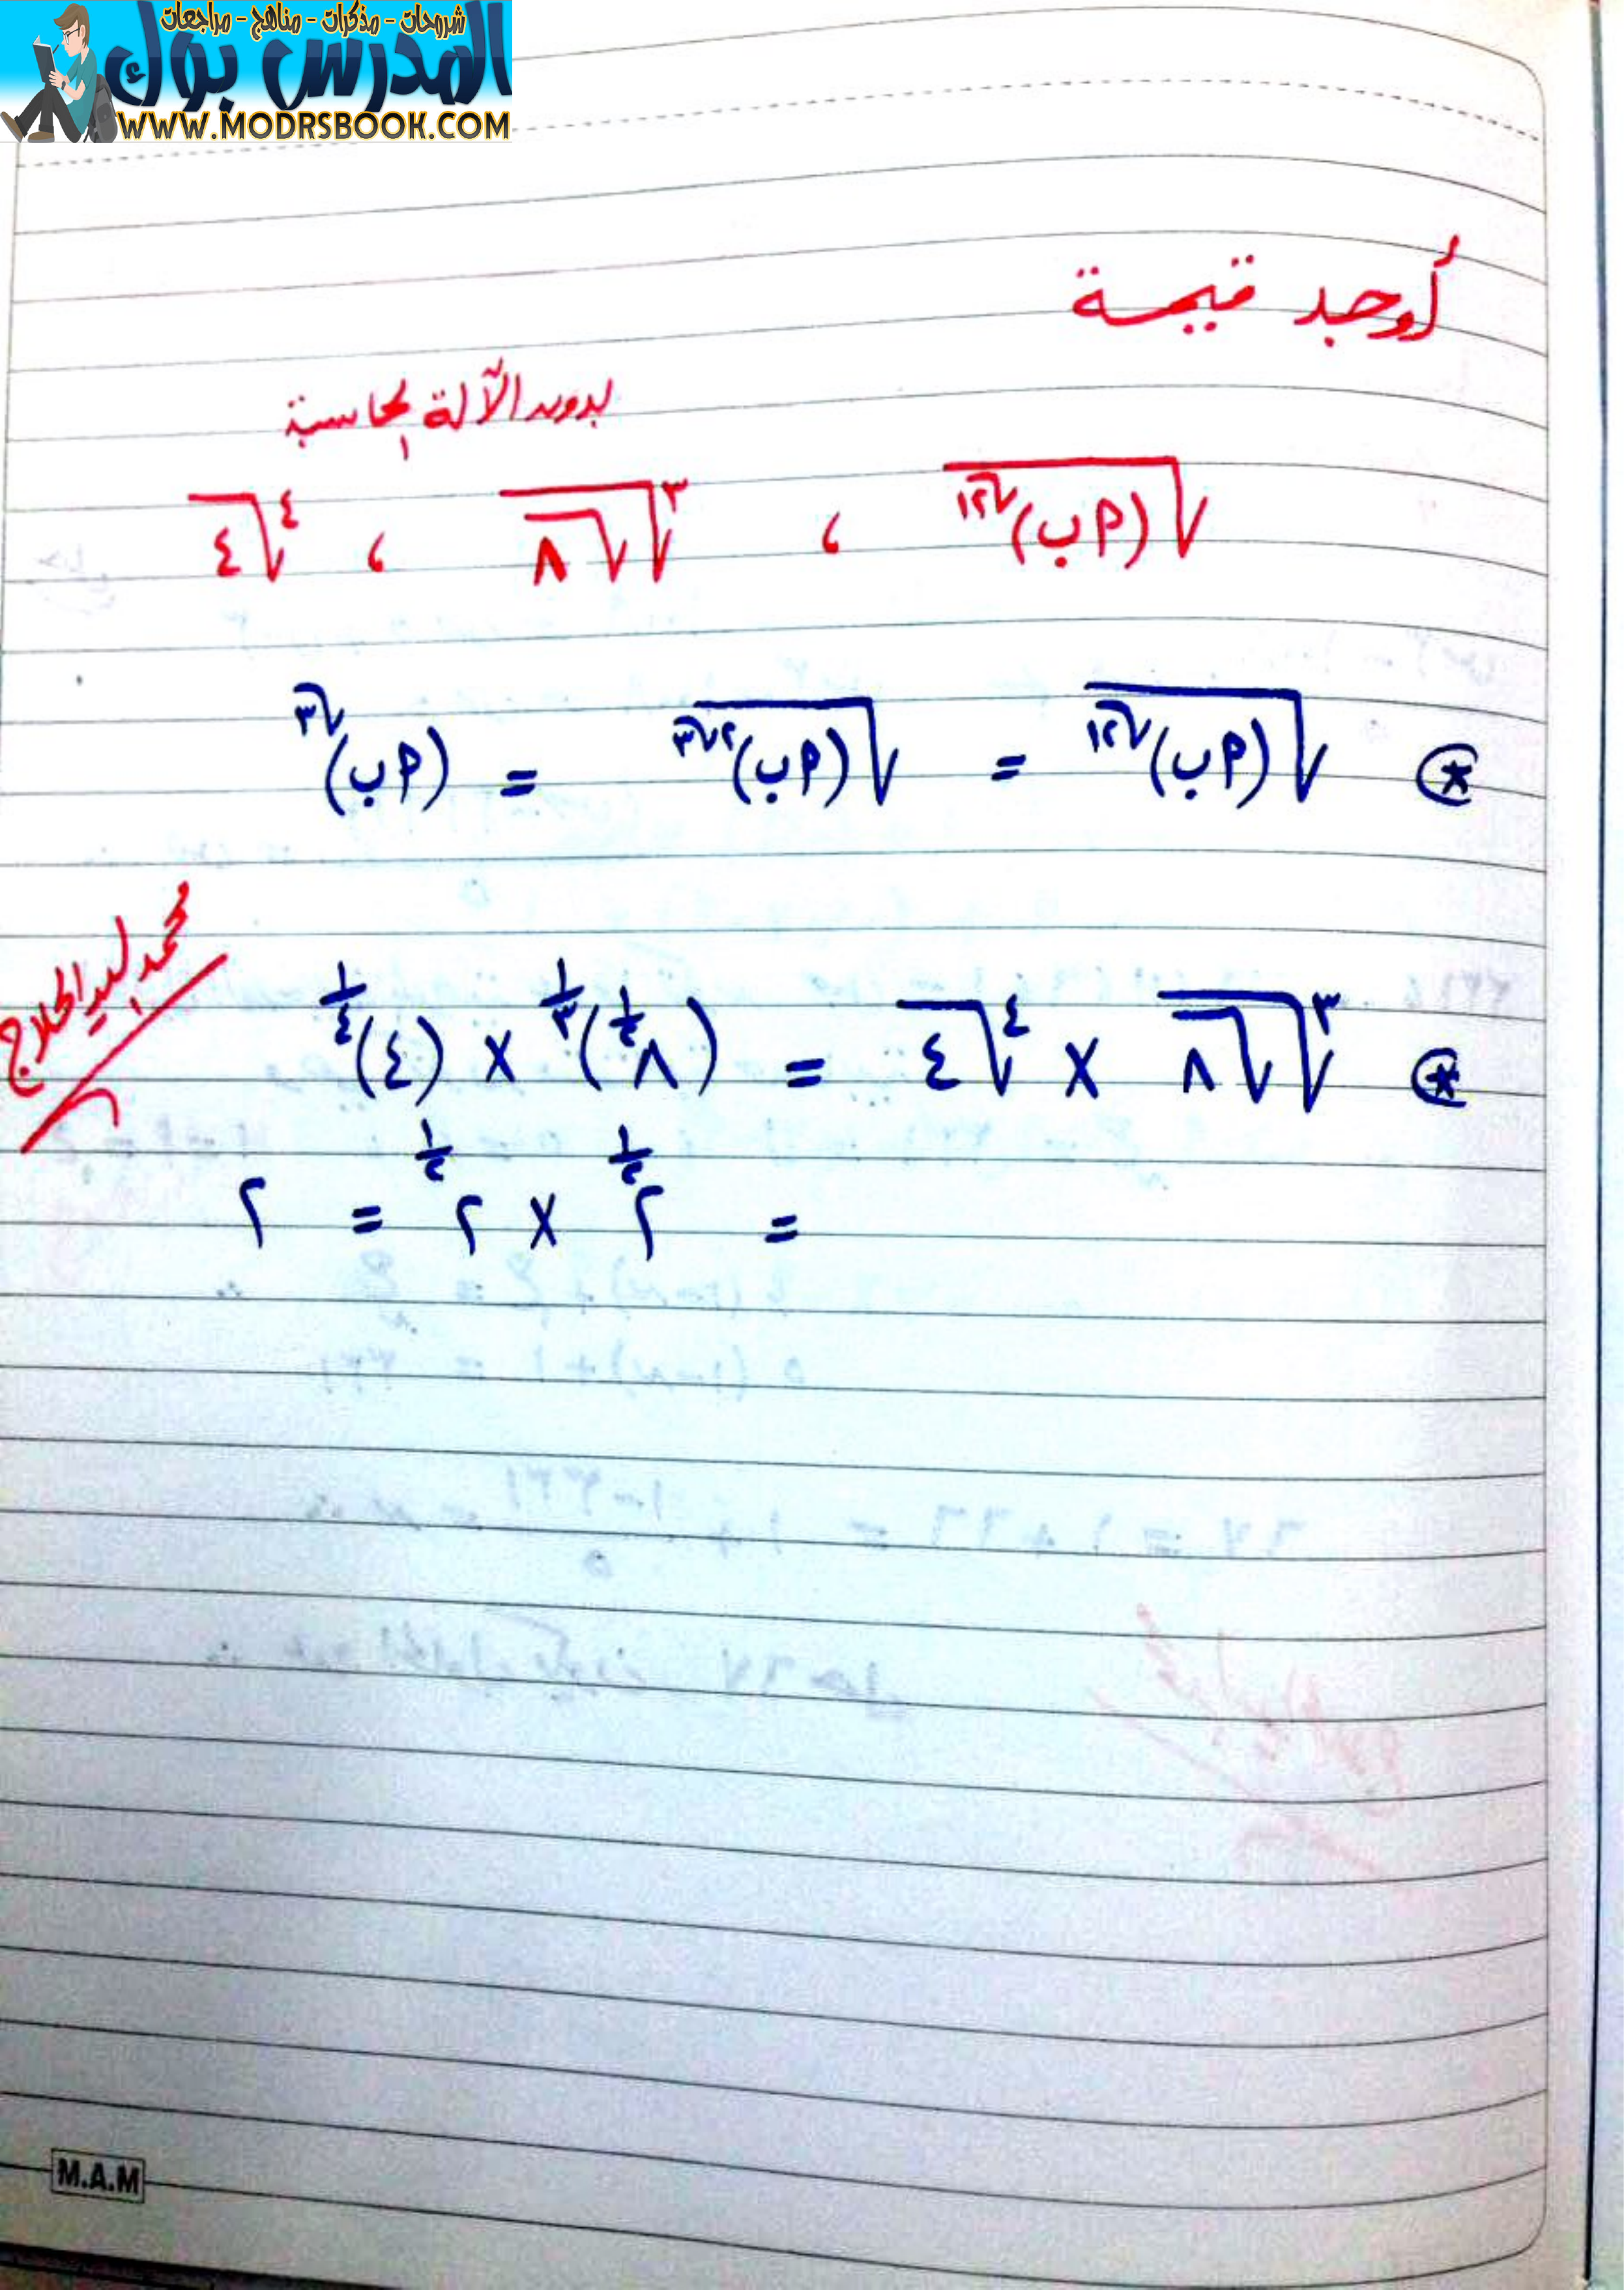 شروحات - مذكرات - مناهج - مراجعات
المدرس بوك
WWW.MODRSBOOK.COM
أوجد قيمة
بدون الآلة الحاسبة
√((أب)^√١٢) ، ∛(√٨) ، ∜٤
⊛ √((أب)^√١٢) = √((أب)^٢√٣) = (أب)^√٣
⊛ ∛(√٨) × ∜٤ = (٨^(١/٢))^(١/٣) × (٤)^(١/٤)
= ٢^(١/٢) × ٢^(١/٢) = ٢
M.A.M